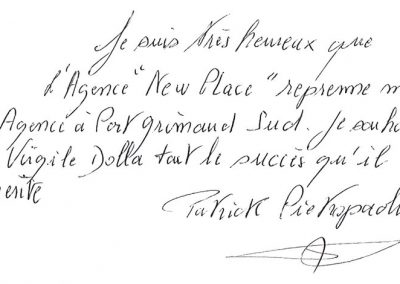 Je suis très heureux que
l'Agence "New Place" reprenne m
Agence à Port Grimaud Sud. Je souh
Virgile Dolla tout le succès qu'il
erite
Patrick Pietropaol